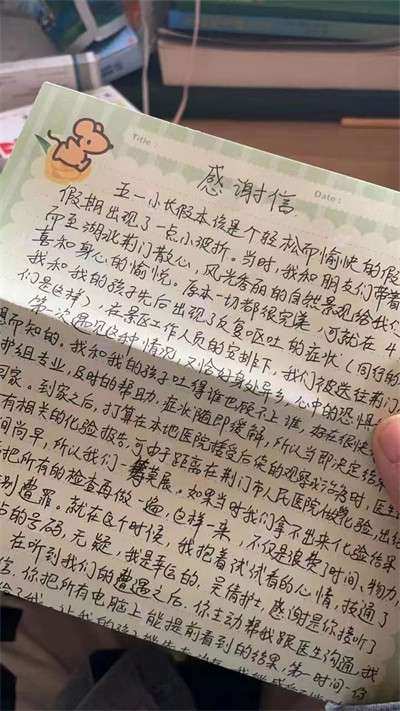 Title:
Date:
感谢信
五一小长假本该是个轻松而愉快的假
假期出现了一点小波折。当时,我和朋友们带着
而至湖北荆门散心,风光秀丽的自然景观给我们
喜和身心的愉悦。原本一切都很完美,可就在
我和我的孩子先后出现了反复呕吐的症状(同行的
们是这样),在景区工作人员的安排下,我们被送往荆门
第一次遇见这种情况,又恰好身处异乡,心中的恐惧
想而知的。我和我的孩子吐得谁也顾不上谁,好在很快
护组专业,及时的帮助,症状随即缓解,所以当即决定结束
回家。到家之后,打算在本地医院接受后续的观察或治疗时,医生
有相关的化验报告,可由于距离在荆门市人民医院做化验,出结
间尚早,所以我们一筹莫展。如果当时我们拿不出来化验结果
把所有的检查再做一遍,这样一来,不仅是浪费了时间、物力,
别遭罪。就在这个时候,我抱着试试看的心情,接通了
的号码,无疑,我是幸运的,吴倩护士,感谢是你接听了
在听到我们的遭遇之后,你主动帮我跟医生沟通,我
你把所有电脑上能提前看到的结果,第一时间一份